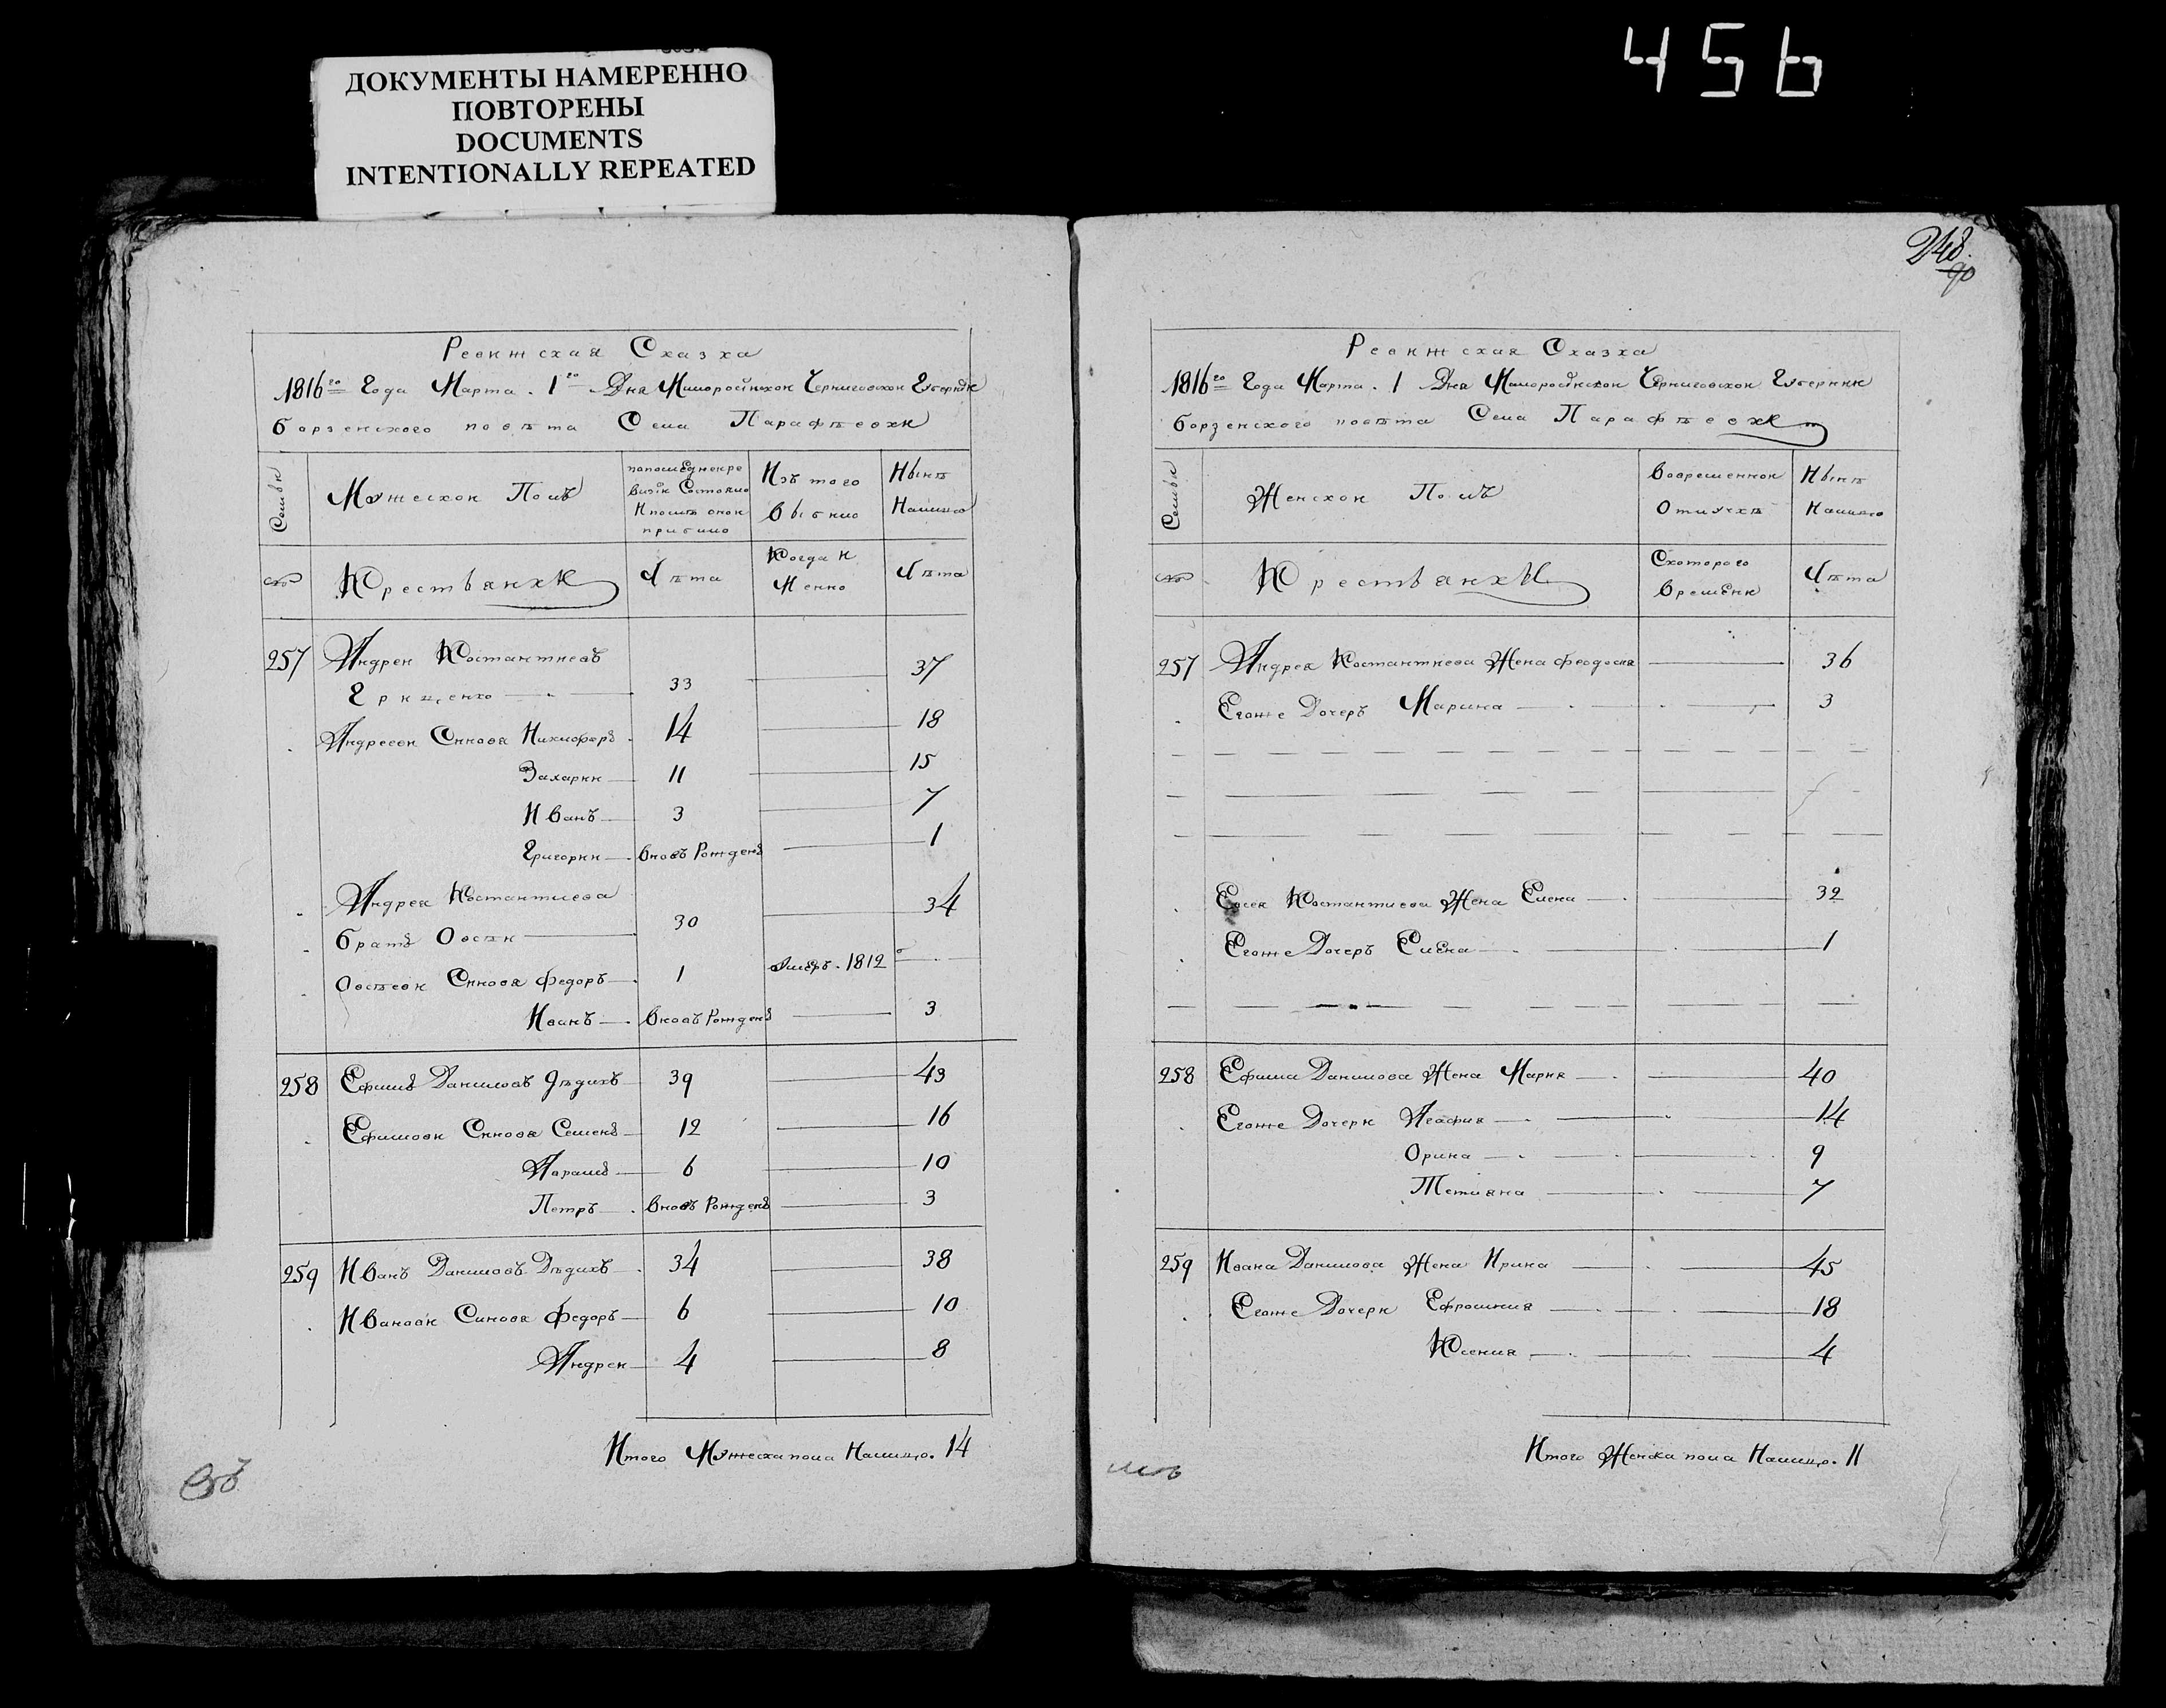 456
ДОКУМЕНТЫ НАМЕРЕННО
ПОВТОРЕНЫ
DOCUMENTS
INTENTIONALLY REPEATED
Ревижская Сказка
1816го Года Марта. 1го Дня Малоросийской Черниговской Губернии
борзенского повѣта Села Парафѣевки
Семьи Мужеской Полъ попоследнейре Изъ того Нынѣ
визіи Состояло выбыло Налицо
Ипослѣ оной
прибыло
№ Крестьянхи Лѣта Когда И Лѣта
Менно
257 Андрей Костантиевъ
Грищенко 33 37
Андреевы Синовя Никифоръ 14 18
Захарии 11 15
Иванъ 3 7
Григории вновъ Рожденъ 1
Андрея Костантиева
братъ Овсѣи 30 34
Овсѣевы Синовя Федоръ 1 Умеръ. 1812
Иванъ вновъ Рожденъ 3
258 Ефимъ Даниловъ Дѣдихъ 39 43
Ефимовы Синовя Семенъ 12 16
Абрамъ 6 10
Петръ вновъ Рожденъ 3
259 Иванъ Даниловъ Дѣдихъ 34 38
Ивановы Синовя Федоръ 6 10
Андреи 4 8
Итого Мужеска пола Налицо. 14
248
90
Ревижская Сказка
1816го Года Марта. 1 Дня Малоросийской Черниговской Губернии
борзенского повѣта Села Парафѣевки
Семьи Женской Полъ вовременной Нынѣ
Отлучкѣ Налицо
№ Крестьянхи Скоторого Лѣта
времѣни
257 Андрея Костантиева Жена Феодосия 36
Егоже Дочеръ Марина 3
Евсея Костантиева Жена Елена 32
Егоже Дочеръ Елена 1
258 Ефима Данилова Жена Мария 40
Егоже Дочери Агафия 14
Орина 9
Тетияна 7
259 Ивана Данилова Жена Ирина 45
Егоже Дочери Ефросиния 18
Ксения 4
Итого Женска пола Налицо. 11